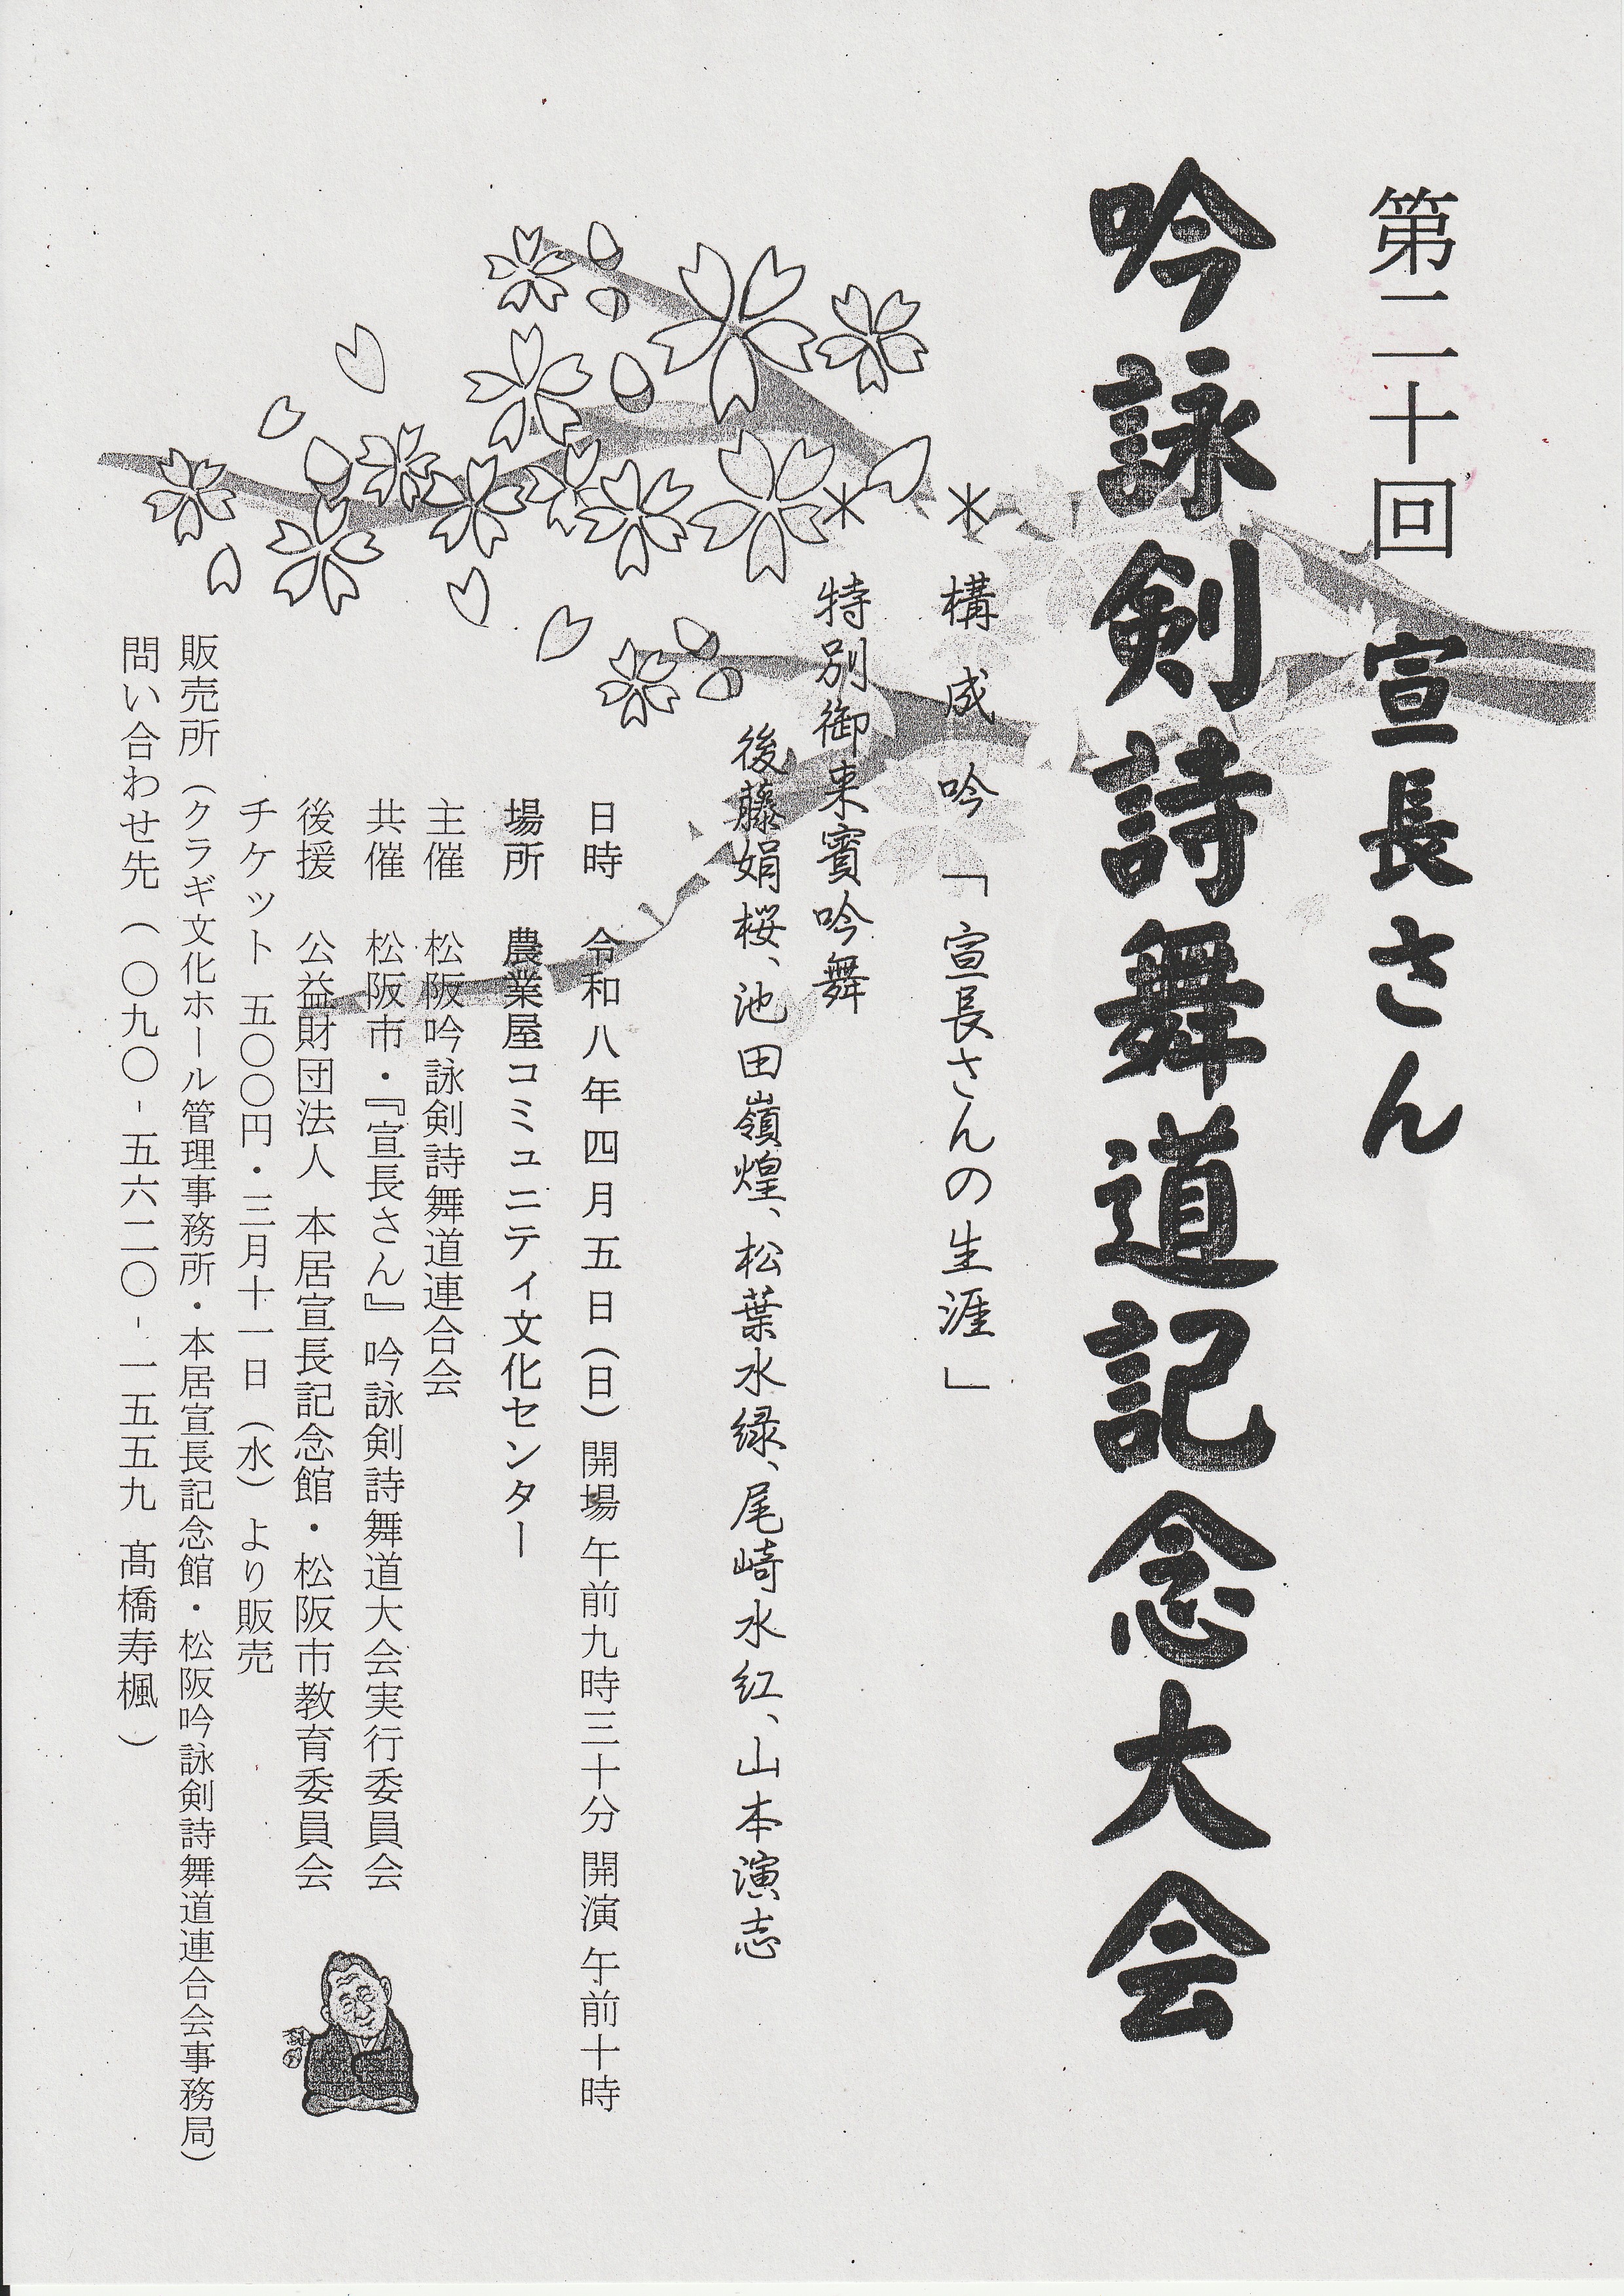 第二十回 宣長さん
吟詠剣詩舞道記念大会
＊ 構成吟「宣長さんの生涯」
＊ 特別御来賓吟舞
後藤娟桜、池田嶺煌、松葉水緑、尾崎水紅、山本演志
日時 令和八年四月五日（日）開場 午前九時三十分 開演 午前十時
場所 農業屋コミュニティ文化センター
主催 松阪吟詠剣詩舞道連合会
共催 松阪市・『宣長さん』吟詠剣詩舞道大会実行委員会
後援 公益財団法人 本居宣長記念館・松阪市教育委員会
チケット 五〇〇円・三月十一日（水）より販売
販売所（クラギ文化ホール管理事務所・本居宣長記念館・松阪吟詠剣詩舞道連合会事務局）
問い合わせ先（〇九〇-五六二〇-一五五九 髙橋寿楓）